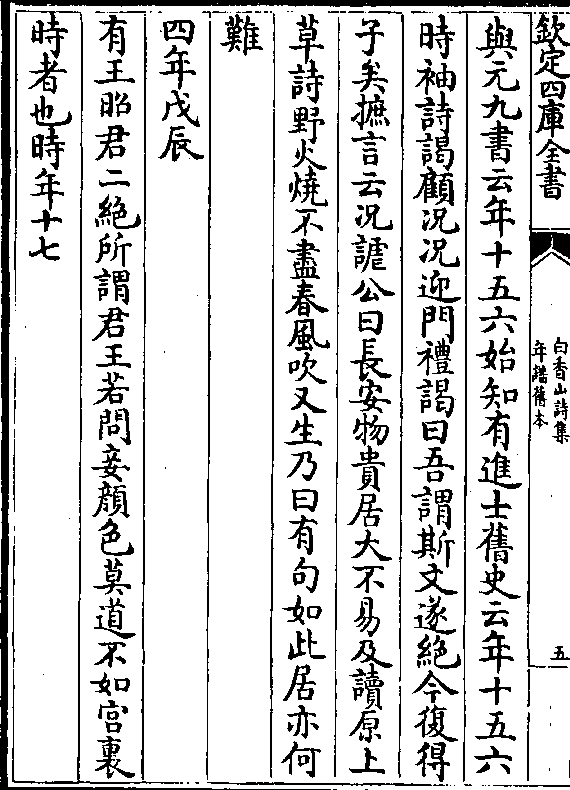 欽定四庫全書
白香山詩集
年譜舊本
五
與元九書云年十五六始知有進士舊史云年十五六
時袖詩謁顧況況迎門禮謁曰吾謂斯文遂絕今復得
子矣摭言云況謔公曰長安物貴居大不易及讀原上
草詩野火燒不盡春風吹又生乃曰有句如此居亦何
難
四年戊辰
有王昭君二絕所謂君王若問妾顏色莫道不如宫裏
時者也時年十七